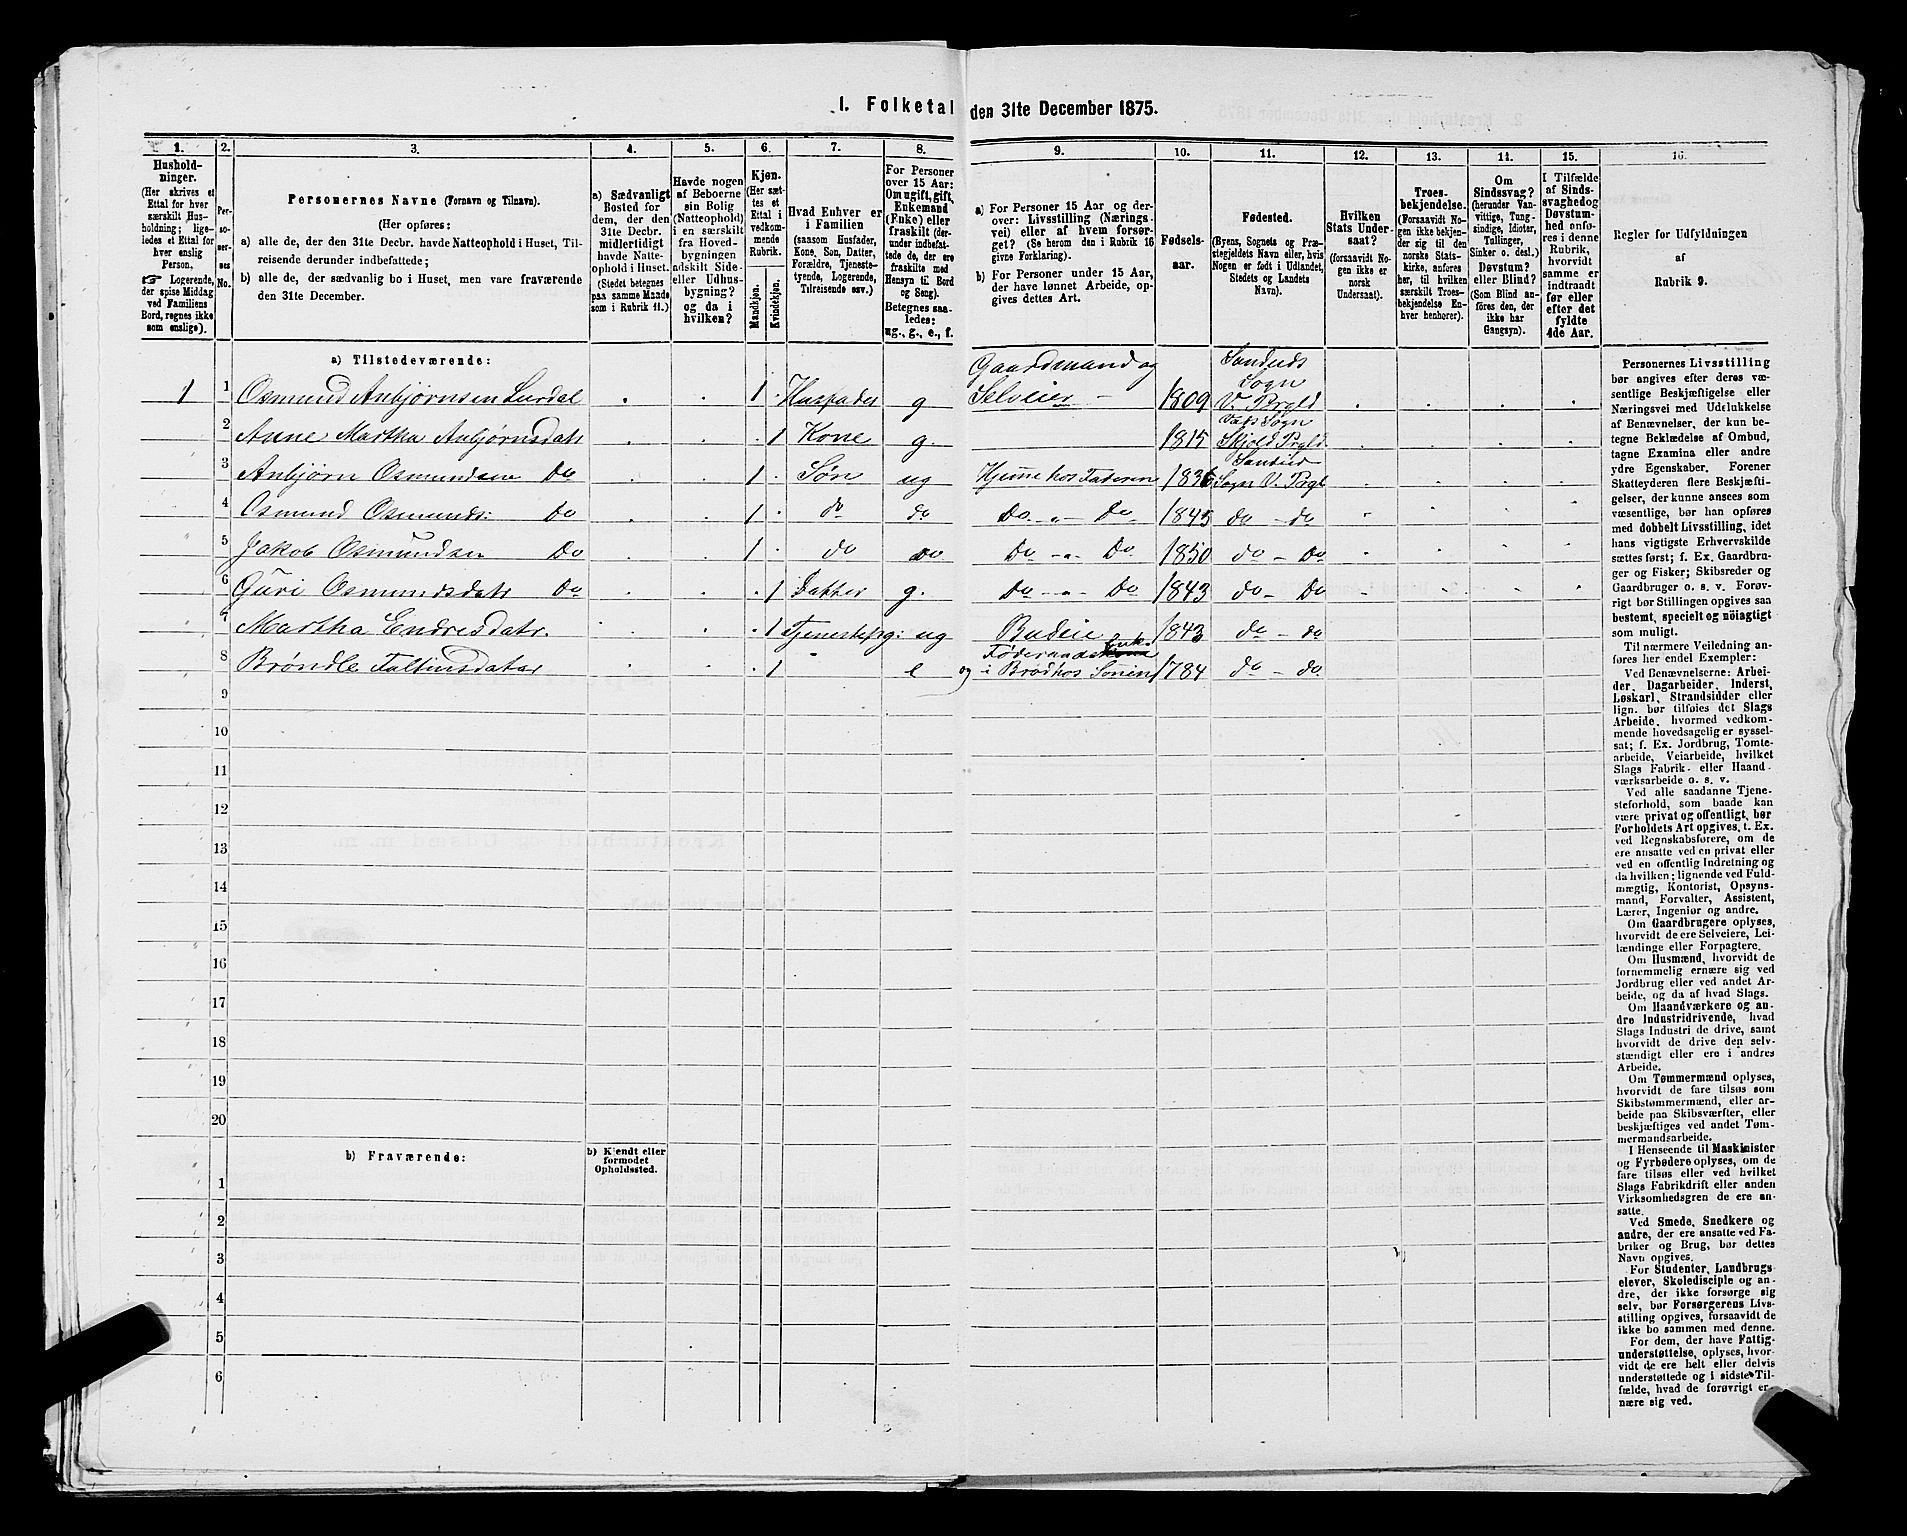 I. Folketal den 31te December 1875.
1. 2. 3. 4. 5. 6. 7. 8. 9. 10. 11. 12. 13. 14. 15. 16.
Hushold-
ninger.
(Her skrives et
Ettal for hver
særskilt Hus-
holdning; lige-
ledes et Ettal for
hver enslig
Person.
Logerende,
der spise Middag
ved Familiens
Bord, regnes ikke
som enslige).
Per-
so-
ner-
nes
No.
Personernes Navne (Fornavn og Tilnavn).
(Her opføres:
a) alle de, der den 31te Decbr. havde Natteophold i Huset, Til-
reisende derunder indbefattede;
b) alle de, der sædvanlig bo i Huset, men vare fraværende
den 31te December.
a) Sædvanligt
Bosted for
dem, der den
31te Decbr.
midlertidigt
havde Natte-
ophold i Huset.
(Stedet betegnes
paa samme Maade
som i Rubrik 11.)
Havde nogen
af Beboerne
sin Bolig
(Natteophold)
i en særskilt
fra Hoved-
bygningen
adskilt Side-
eller Udhus-
bygning?
og da i
hvilken?
Kjøn.
(Her sæt-
tes et
Ettal i
vedkom-
mende
Rubrik.
Mandkjøn.
Kvindekjøn.
Hvad Enhver er
i Familien
(saasom Husfader,
Kone, Søn, Datter,
Forældre, Tjeneste-
tyende, Logerende,
Tilreisende osv.)
For Personer
over 15 Aar:
Om ugift, gift,
Enkemand
(Enke) eller
fraskilt (der-
under indbefat-
tede de, der ere
fraskilte med
Hensyn til Bord
og Seng).
Betegnes saa-
ledes:
ug., g., e., f.
a) For Personer 15 Aar og der-
over: Livsstilling (Nærings-
vei) eller af hvem forsør-
get? (Se herom den i Rubrik 16
givne Forklaring).
b) For Personer under 15 Aar,
der have lønnet Arbeide, op-
gives dettes Art.
Fødsels-
aar.
Fødested.
(Byens, Sognets og Præ-
stegjeldets Navn eller, hvis
Nogen er født i Udlandet,
Stedets og Landets
Navn).
Hvilken
Stats Under-
saat?
(forsaavidt No-
gen ikke er
norsk
Undersaat).
Troes-
bekjendelse.
(Forsaavidt No-
gen ikke bekjen-
der sig til den
norske Stats-
kirke, anføres
her, til hvilken
særskilt Troes-
bekjendelse En-
hver henhører).
Om
Sindssvag?
(herunder Van-
vittige, Tung-
sindige, Idioter,
Tullinger,
Sinker o. desl.)
Døvstum?
eller Blind?
(Som Blind an-
føres den, der
ikke har
Gangsyn).
I Tilfælde
af Sinds-
svaghed og
Døvstum-
hed anfø-
res i denne
Rubrik,
hvorvidt
samme er
indtraadt
før eller
efter det
fyldte
4de Aar.
Regler for Udfyldningen
af
Rubrik 9.
a) Tilstedeværende:
1 1 Osmund Anbjørnsen Lurdal 1 Husfader g Gaardmand og Selveier 1809 Sandeids Sogn V. Prgld
2 Anne Martha Anbjørnsdatr 1 Kone g. 1815 Vats Sogn Skjold Prgld
3 Anbjørn Osmundsen Do 1 Søn ug Hjemme hos Faderen 1836 Sandeid Sogn V. Prgl
4 Osmund Osmunds: Do 1 do do Do " Do 1845 do - do
5 Jakob Osmundsen Do 1 do do Do " Do 1850 do - Do
6 Guri Osmundsdatr Do 1 Datter g. Do " Do 1843 do - Do
7 Martha Endresdatr. 1 Tjenestepg: ug Budeie 1843 do - do
8 Brøndle Faltinsdater 1 " e Føderaads Enke og i Brød hos Sønnen 1784 do - do
9
10
11
12
13
14
15
16
17
18
19
20
b) Fraværende:
b) Kjendt eller
formodet
Opholdssted.
1
2
3
4
5
6
Personernes Livsstilling
bør angives efter deres væ-
sentlige Beskjæftigelse eller
Næringsvei med Udelukkelse
af Benævnelser, der kun be-
tegne Beklædelse af Ombud,
tagne Examina eller andre
ydre Egenskaber. Forener
Skatteyderen flere Beskjæfti-
gelser, der kunne ansees som
væsentlige, bør han opføres
med dobbelt Livsstilling, idet
hans vigtigste Erhvervskilde
sættes først; f. Ex. Gaardbru-
ger og Fisker; Skibsreder og
Gaardbruger o. s. v. Forøv-
rigt bør Stillingen opgives saa
bestemt, specielt og nöiagtigt
som muligt.
Til nærmere Veiledning an-
føres her endel Exempler:
Ved Benævnelserne: Arbei-
der, Dagarbeider, Inderst,
Løskarl, Strandsidder eller
lign. bør tilføies det Slags
Arbeide, hvormed vedkom-
mende hovedsagelig er syssel-
sat; f. Ex. Jordbrug, Tomte-
arbeide, Veiarbeide, hvilket
Slags Fabrik- eller Haand-
værksarbeide o. s. v.
Ved alle saadanne Tjene-
steforhold, som baade kan
være privat og offentligt, bør
Forholdets Art opgives, t. Ex.
ved Regnskabsførere, om de
ere ansatte ved en privat eller
ved en offentlig Indretning og
da hvilken; lignende ved Fuld-
mægtig, Kontorist, Opsyns-
mand, Forvalter, Assistent,
Lærer, Ingeniør og andre.
Om Gaardbrugere oplyses,
hvorvidt de ere Selveiere, Lei-
lændinge eller Forpagtere.
Om Husmænd, hvorvidt de
fornemmelig ernære sig ved
Jordbrug eller ved andet Ar-
beide, og da af hvad Slags.
Om Haandværkere og an-
dre Industridrivende, hvad
Slags Industri de drive, samt
hvorvidt de drive den selv-
stændigt eller ere i andres
Arbeide.
Om Tømmermænd oplyses,
hvorvidt de fare tilsøs som
Skibstømmermænd, eller ar-
beide paa Skibsværfter, eller
beskjæftiges ved andet Tøm-
mermandsarbeide.
I Henseende til Maskinister
og Fyrbødere oplyses, om de
fare tilsøs eller ved hvilket
Slags Fabrikdrift eller anden
Virksomhedsgren de ere an-
satte.
Ved Smede, Snedkere og
andre, der ere ansatte ved Fa-
briker og Brug, bør dettes
Navn opgives.
For Studenter, Landbrugs-
elever, Skoledisciple og an-
dre, der ikke forsørge sig
selv, bør Forsørgerens Livs-
stilling opgives, forsaavidt de
ikke bo sammen med denne.
For dem, der have Fattig-
understøttelse, oplyses, hvor-
vidt de ere helt eller delvis
understøttede og i sidste Til-
fælde, hvad de forøvrigt er-
nære sig ved.